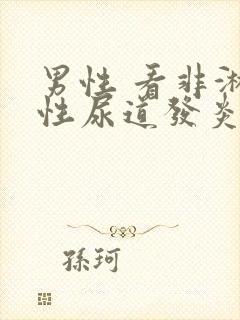 男性 看非淋
性尿道發炎
孫珂